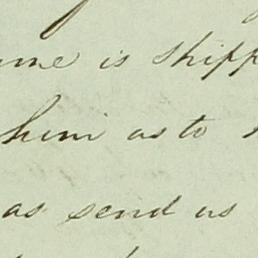 is shipp
him as to
as send us